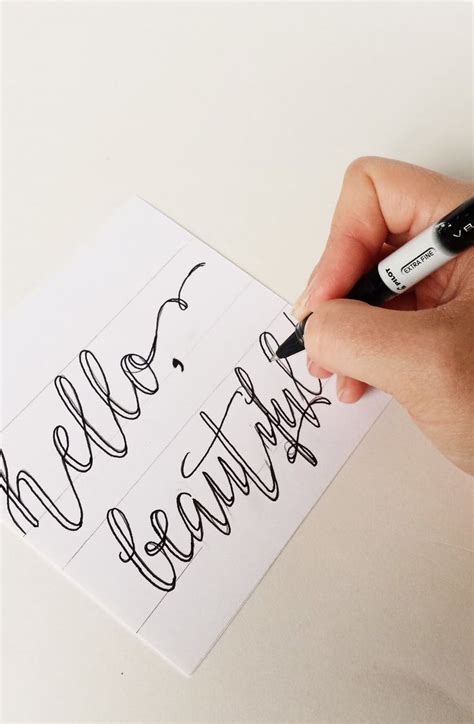 hello,
beautiful
PILOT
EXTRA FINE